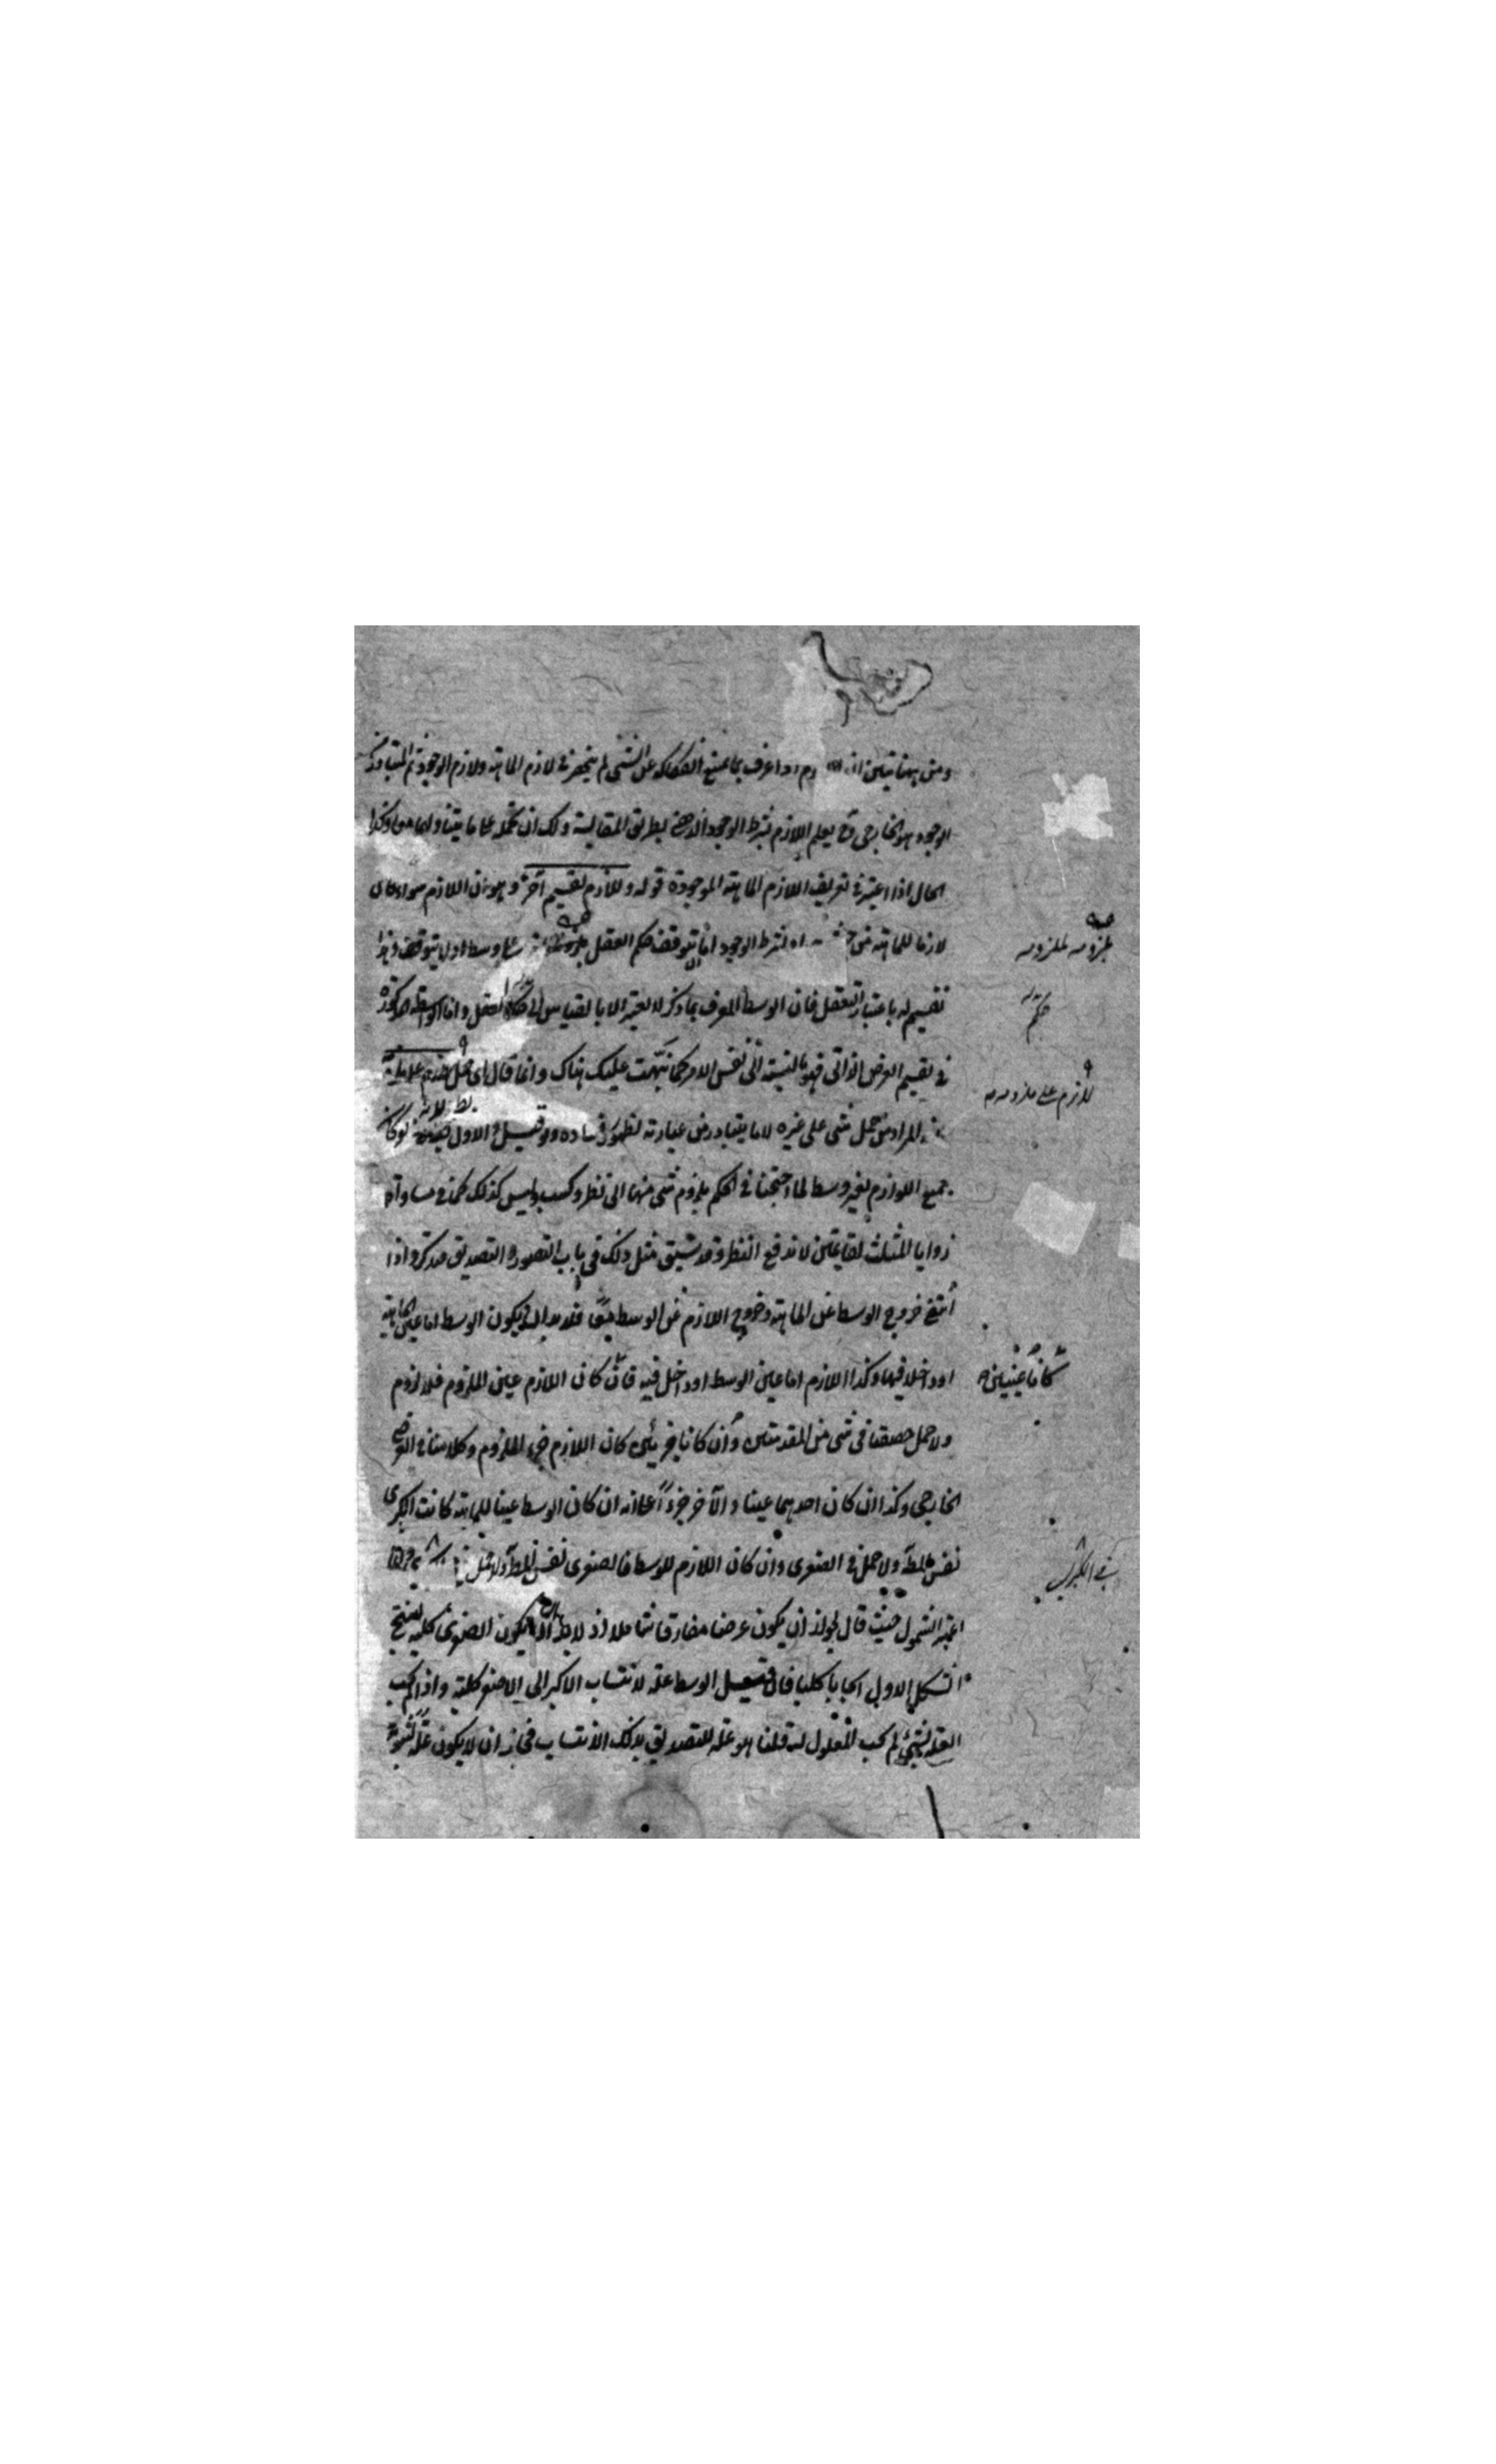 ومن ههنا تبين ان اذا عرف بما يمتنع انفكاكه عن الشئ لم ينحصر في لازم الماهية ولازم الوجود ثم المتبادر من
الوجود هو الخارجي وح يعلم اللازم بشرط الوجود الذهني بطريق المقايسة ولك ان تحمله على ما يتناولهما معا وكذا
الحال اذا اعتبر في تعريف اللازم الماهية الموجودة قوله وللازم تقسيم آخر وهو ان اللازم سواء كان
لازما للماهية من حيث او بشرط الوجود اما ان يتوقف حكم العقل على وسط او لا يتوقف وهذا
بلزومه لملزومه
تقسيم له باعتبار التعقل فان الوسط المعرف بما ذكر لا يعتبر الا بالقياس الى حكم العقل واما الواسطة المذكورة
حكم
في تقسيم العرض الذاتي فهو بالنسبة الى نفس الامر كما نبهت عليك هناك وانما قال اي حمل
لازم على ملزومه
المراد من حمل شئ على غيره لا ما يتبادر من عبارته لظهور فساده وقيل الاول لو كان
جميع اللوازم بغير وسط لما احتجنا في الحكم بلزوم شئ منها الى نظر وكسب وليس كذلك كما في مساواة
زوايا المثلث لقائمتين لاندفع النظر وقد سبق مثل ذلك في باب التصور والتصديق فتذكر واذا
انتفى خروج الوسط عن الماهية وخروج اللازم عن الوسط معا فلا بد ان يكون الوسط اما عين الماهية
او داخلا فيها وكذا اللازم اما عين الوسط او داخل فيه فان كان اللازم عين الملزوم فلا لزوم
كانا عينين
ولا حمل حقيقة في شئ من المقدمتين وان كانا جزئين كان اللازم جزء الملزوم وكلامنا في العرضي
الخارجي وكذا ان كان احدهما عينا والآخر جزءا على انه ان كان الوسط عينا للماهية كانت الكبرى
نفس المط ولا حمل في الصغرى وان كان اللازم للوسط فالصغرى نفس المط ولا حمل
في الكبرى
اعتبر الشمول حيث قال لجواز ان يكون عرضا مفارقا شاملا اذ لا بد ان يكون الصغرى كلية لينتج
الشكل الاول ايجابا كليا فان قيل الوسط علة لانتساب الاكبر الى الاصغر كلية واذا لم يجب
العلة لشئ لم يجب المعلول له قلنا هو علة للتصديق بذلك الانتساب فجاز ان لا يكون علة لثبوته